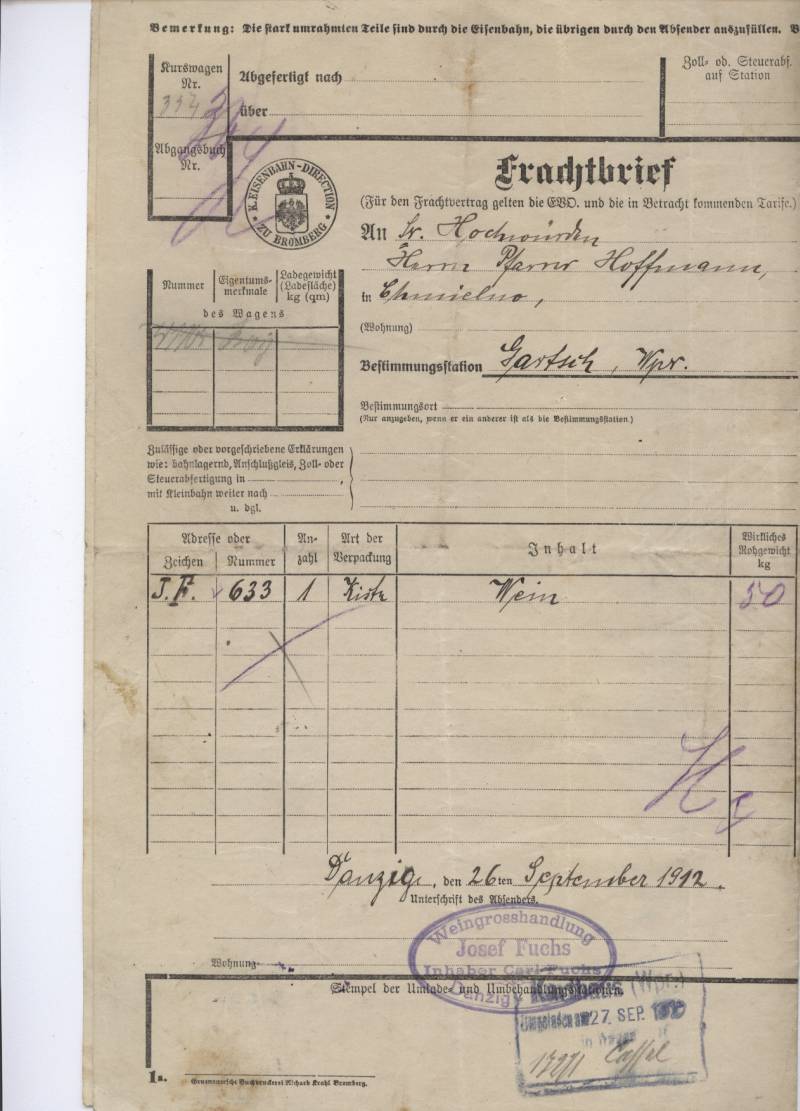 Bemerkung: Die stark umrahmten Teile sind durch die Eisenbahn, die übrigen durch den Absender auszufüllen.
Kurswagen
Nr.
Abgefertigt nach
über
Zoll- od. Steuerabf.
auf Station
Abgangsbuch
Nr.
K. EISENBAHN-DIRECTION
ZU BROMBERG
Frachtbrief
(Für den Frachtvertrag gelten die EVO. und die in Betracht kommenden Tarife.)
An Sr. Hochwürden
Herrn Pfarrer Hoffmann,
in Chmielno,
(Wohnung)
Bestimmungsstation Gartsch, Wpr.
Bestimmungsort
(Nur anzugeben, wenn er ein anderer ist als die Bestimmungsstation.)
Nummer
Eigentums-
merkmale
Ladegewicht
(Ladefläche)
kg (qm)
des Wagens
Zulässige oder vorgeschriebene Erklärungen
wie: bahnlagernd, Anschlußgleis, Zoll- oder
Steuerabfertigung in
mit Kleinbahn weiter nach
u. dgl.
Adresse oder
Zeichen
Nummer
An-
zahl
Art der
Verpackung
Inhalt
Wirkliches
Rohgewicht
kg
J. F. 633 1 Kiste Wein 50
Danzig, den 26ten September 1912.
Unterschrift des Absenders.
Weingrosshandlung
Josef Fuchs
Inhaber Carl Fuchs
Danzig
Wohnung
Stempel der Umlade- und Umbehandlungsstationen.
(Wpr.)
27. SEP. 1912
in Wagen
17271 Cassel
1a.
Gruenauersche Buchdruckerei Richard Krahl Bromberg.